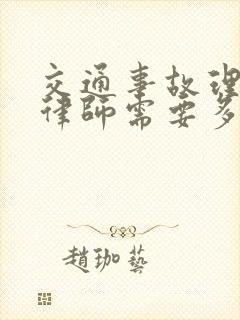 交通事故理
律師需要多
趙珈藝